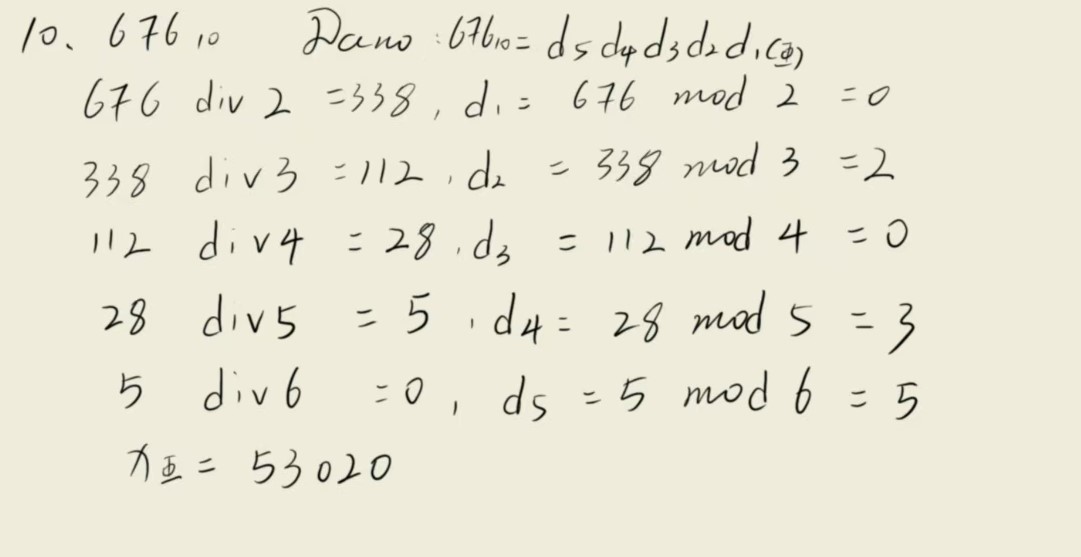 10、676₁₀ Дано:676₁₀= d₅d₄d₃d₂d₁(Ф)
676 div 2 =338, d₁= 676 mod 2 =0
338 div3 =112, d₂ = 338 mod 3 =2
112 div4 = 28, d₃ = 112 mod 4 = 0
28 div5 = 5, d₄= 28 mod 5 = 3
5 div6 =0, d₅ = 5 mod 6 = 5
xФ = 53020